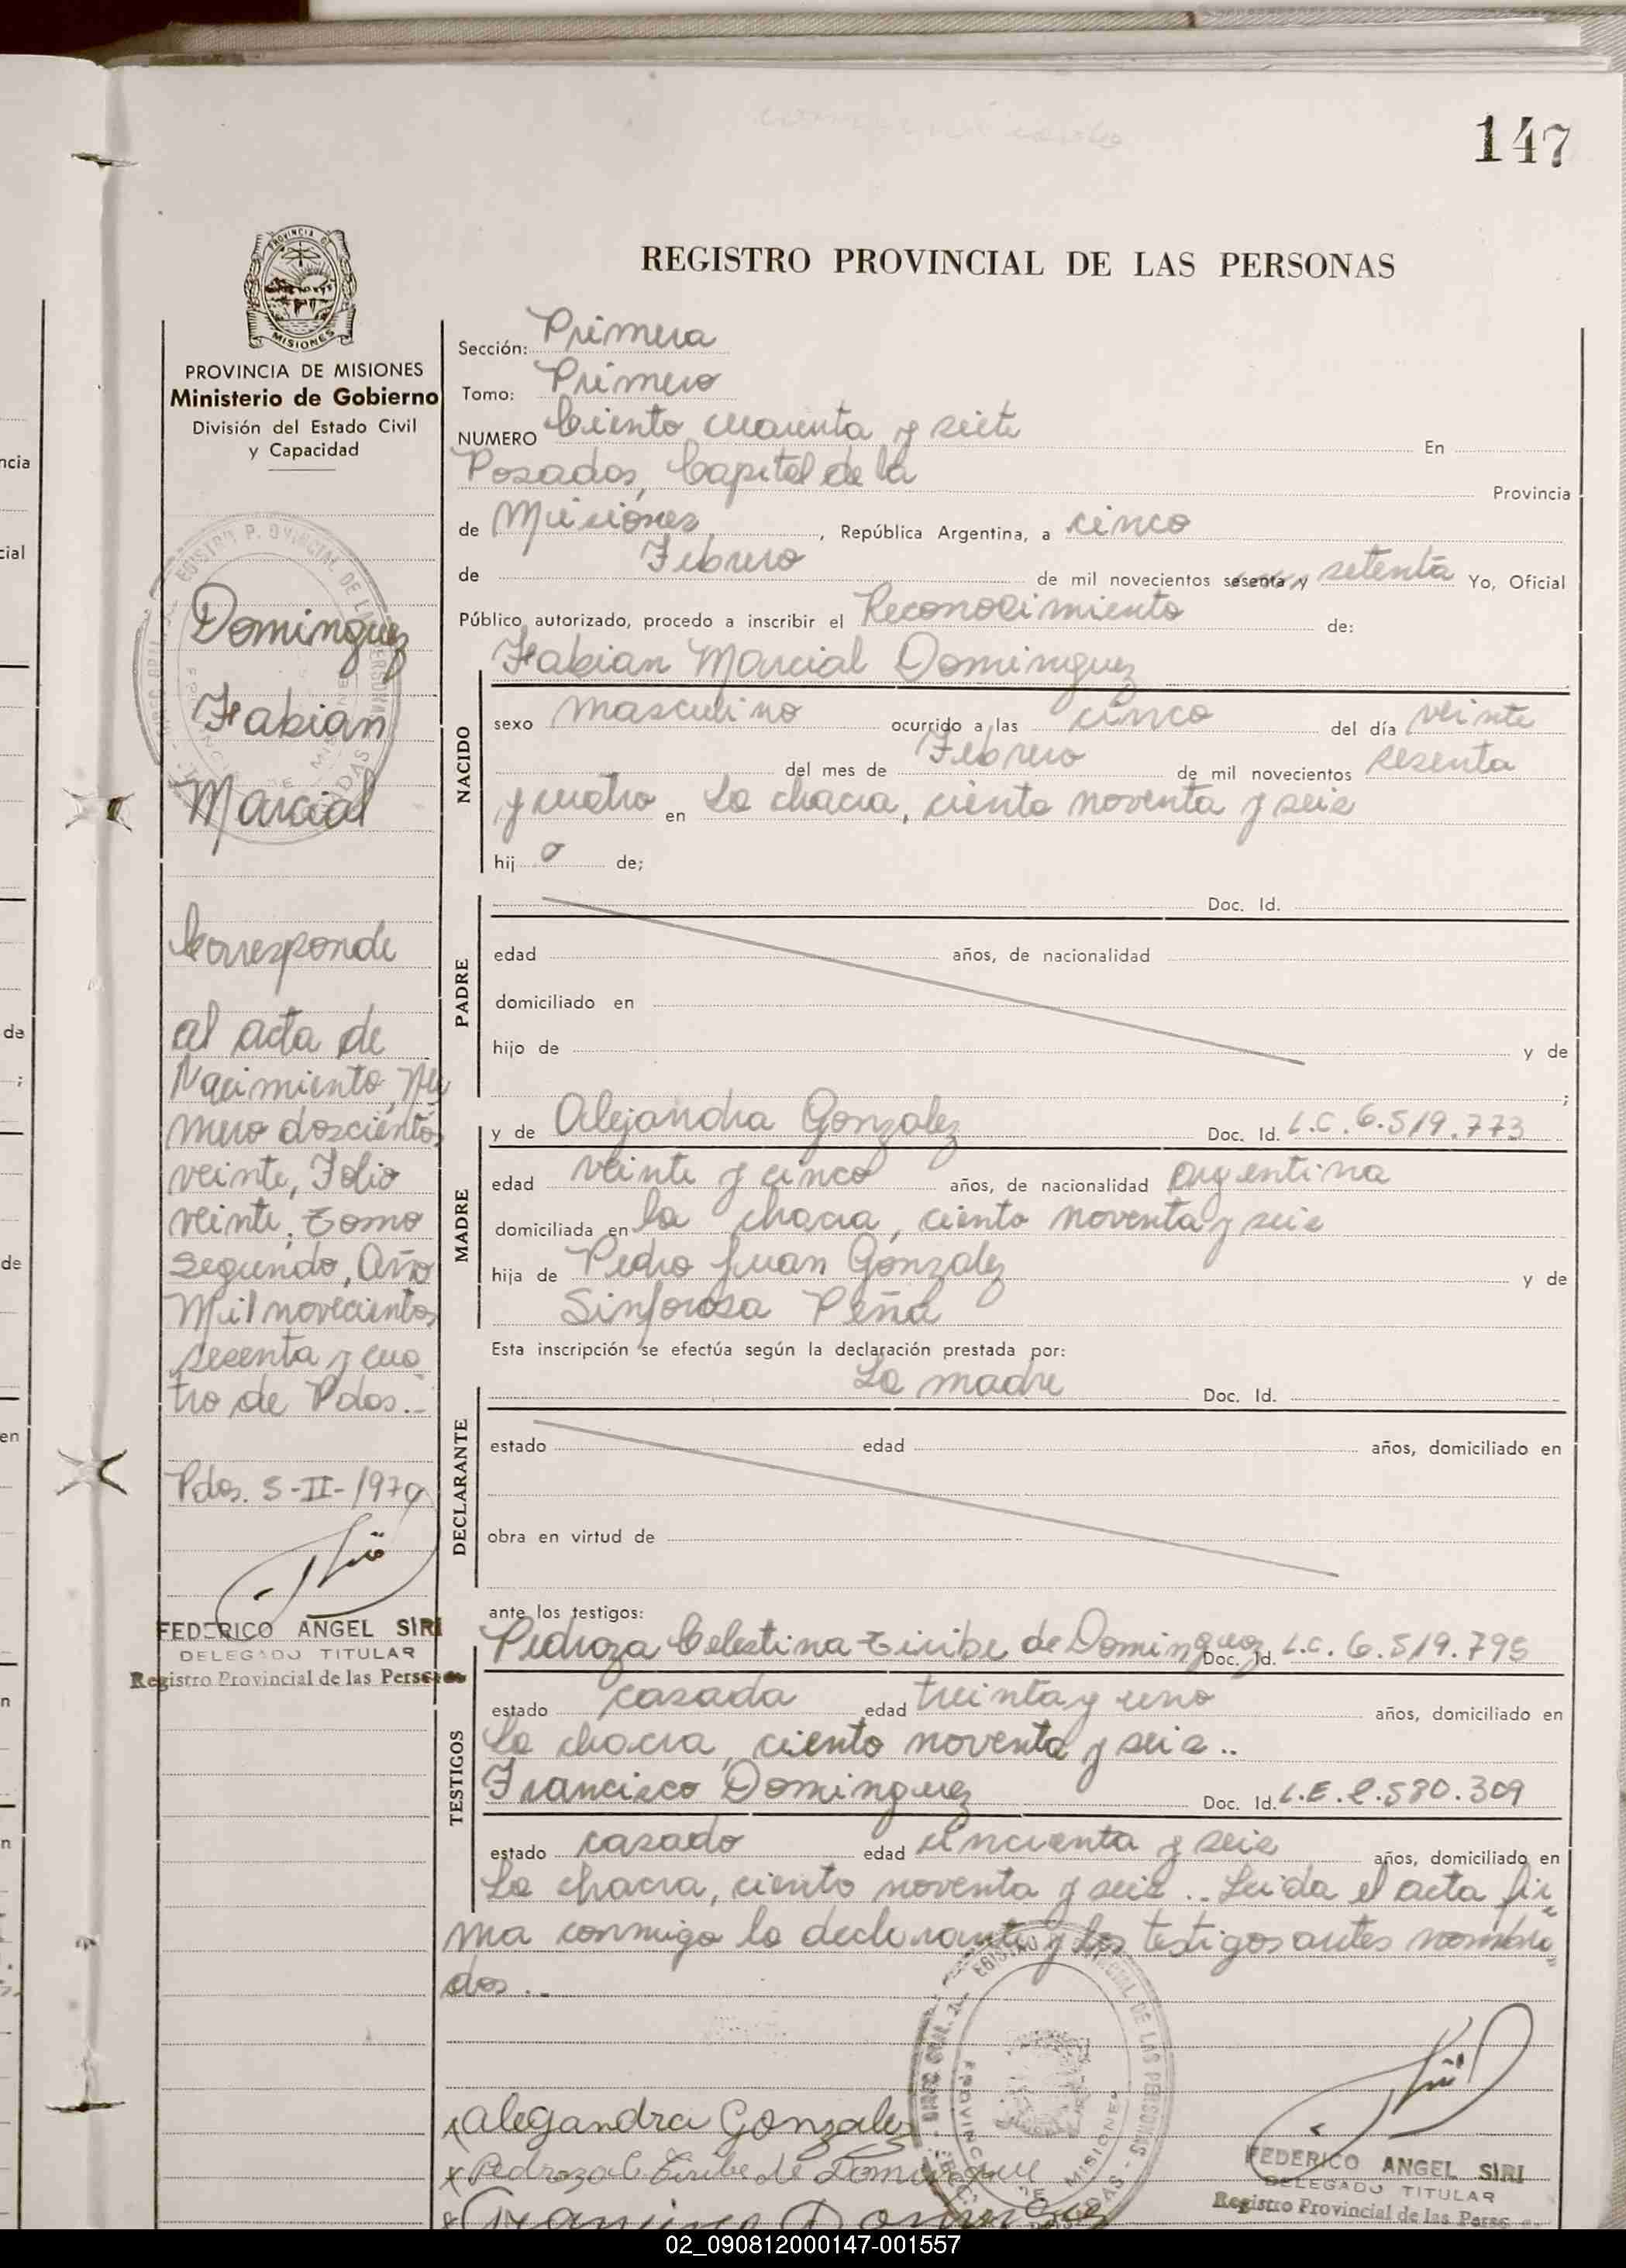 147
REGISTRO PROVINCIAL DE LAS PERSONAS
PROVINCIA DE MISIONES
Ministerio de Gobierno
División del Estado Civil
y Capacidad
Dominguez
Fabian
Marcial
Corresponde
al acta de
Nacimiento, Nu
mero doscientos
veinte, Folio
veinte, Tomo
segundo, Año
Mil novecientos
sesenta y cua
tro de Pdas.-
Pdas. 5-II-1970
FEDERICO ANGEL SIRI
DELEGADO TITULAR
Registro Provincial de las Personas
Sección: Primera
Tomo: Primero
NUMERO Ciento cuarenta y siete En
Posadas, Capital de la Provincia
de Misiones, República Argentina, a cinco
de Febrero de mil novecientos sesenta y setenta Yo, Oficial
Público autorizado, procedo a inscribir el Reconocimiento de:
Fabian Marcial Dominguez
NACIDO
sexo masculino ocurrido a las cinco del día veinte
del mes de Febrero de mil novecientos sesenta
y cuatro en La chacra, ciento noventa y seis
hij o de;
PADRE
Doc. Id.
edad años, de nacionalidad
domiciliado en
hijo de y de
;
MADRE
y de Alejandra Gonzalez Doc. Id. L.C. 6.519.773
edad veinte y cinco años, de nacionalidad argentina
domiciliada en la chacra, ciento noventa y seis
hija de Pedro Juan Gonzalez y de
Sinforosa Peña
Esta inscripción se efectúa según la declaración prestada por:
DECLARANTE
La madre Doc. Id.
estado edad años, domiciliado en
obra en virtud de
ante los testigos:
TESTIGOS
Pedroza Celestina Tiribe de Dominguez Doc. Id. L.C. 6.519.795
estado casada edad treinta y uno años, domiciliado en
La chacra, ciento noventa y seis..
Francisco Dominguez Doc. Id. L.E. 2.580.309
estado casado edad cincuenta y seis años, domiciliado en
La chacra, ciento noventa y seis.. Leida el acta fir
ma conmigo la declarante y los testigos antes nombra
dos..
x Alegandra Gonzalez
x Pedroza C Tiribe de Dominguez
x Francisco Dominguez
FEDERICO ANGEL SIRI
DELEGADO TITULAR
Registro Provincial de las Perso
02_090812000147-001557